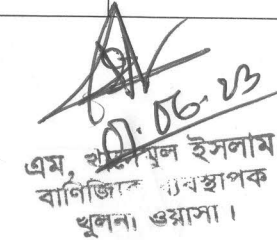 06-23
এম, ইসলাম
বাণিজ্যিক ব্যবস্থাপক
খুলনা ওয়াসা।